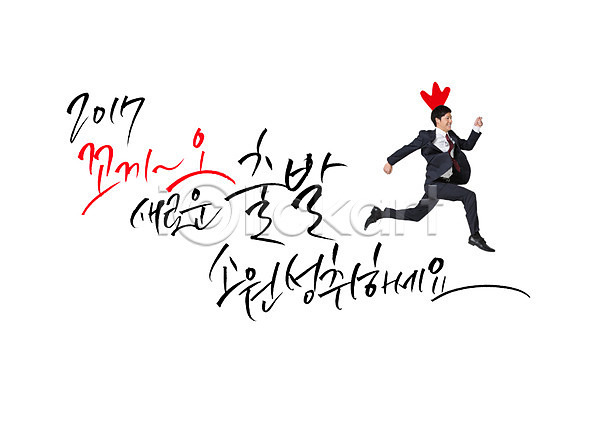 2017
꼬끼~오
새로운 출발
소원성취하세요
iclickart